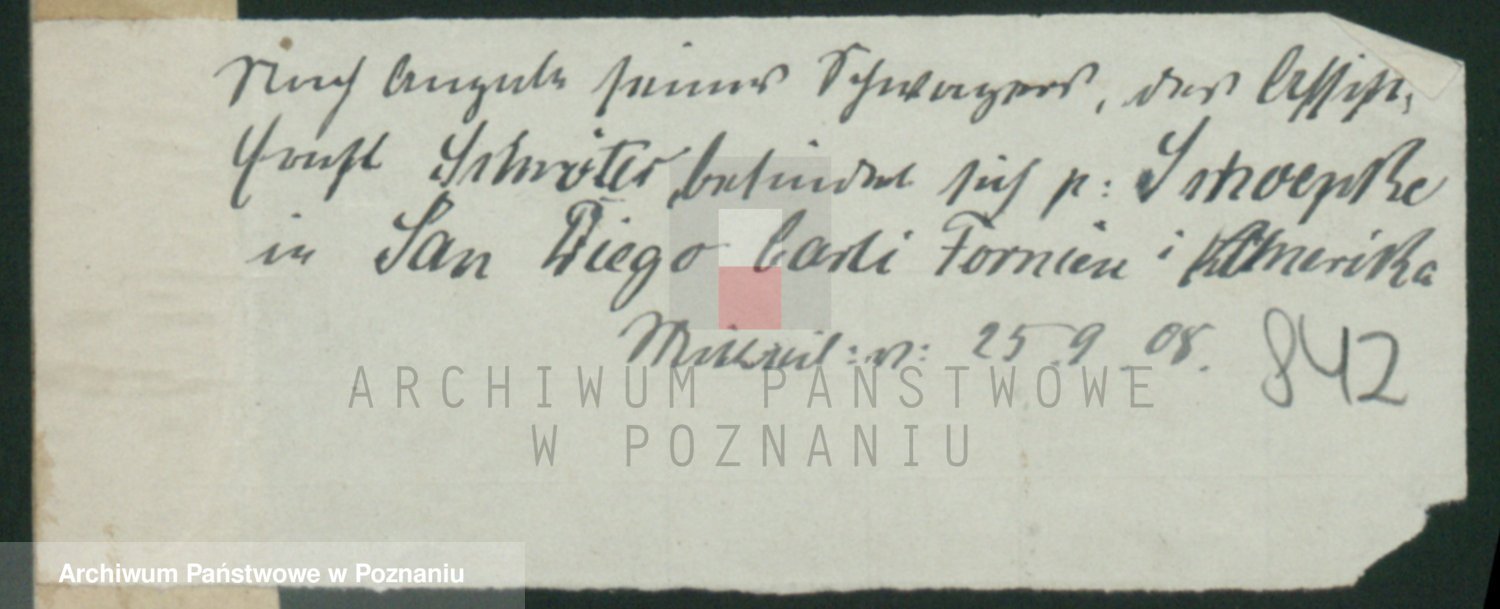 Nach Angabe seines Schwagers, des Assist,
Ernst Schröter befindet sich p: Schoepke
in San Diego Carli Fornien i Amerika
Mitteil: v: 25.9.08.
842
ARCHIWUM PAŃSTWOWE
W POZNANIU
Archiwum Państwowe w Poznaniu